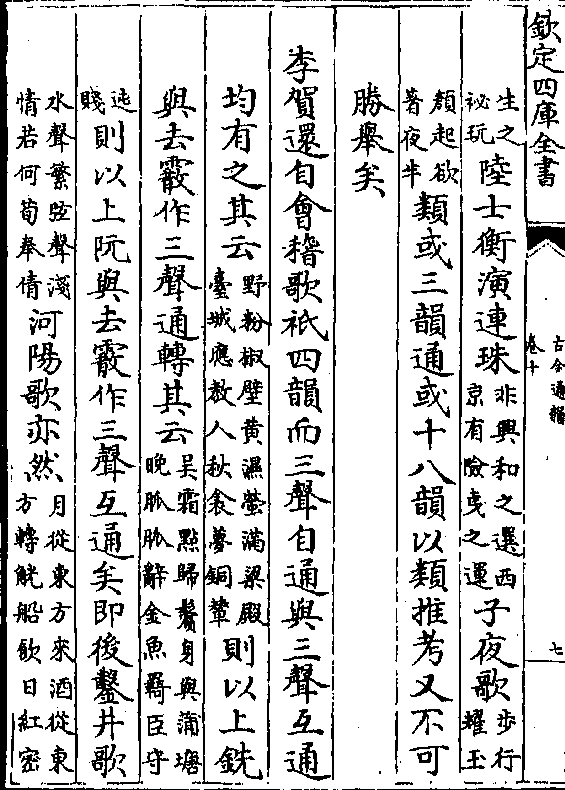 欽定四庫全書
古今通韻
卷十
七
生之
祕玩
陸士衡演連珠
非興和之選西
京有險夷之運
子夜歌
步行
耀玉
顔起欲
著夜半
類或三韻通或十八韻以類推考又不可
勝舉矣
李賀還自會稽歌祗四韻而三聲自通與三聲互通
均有之其云
野粉椒壁黄濕螢滿梁殿
臺城應教人秋衾夢銅輦
則以上銑
與去霰作三聲通轉其云
吳霜點歸鬢身與蒲塘
晚脈脈辭金魚羇臣守
迍
賤
則以上阮與去霰作三聲互通矣即後鑿井歌
水聲繁絃聲淺
情若何荀奉倩
河陽歌亦然
月從東方來酒從東
方轉觥船飫口紅密